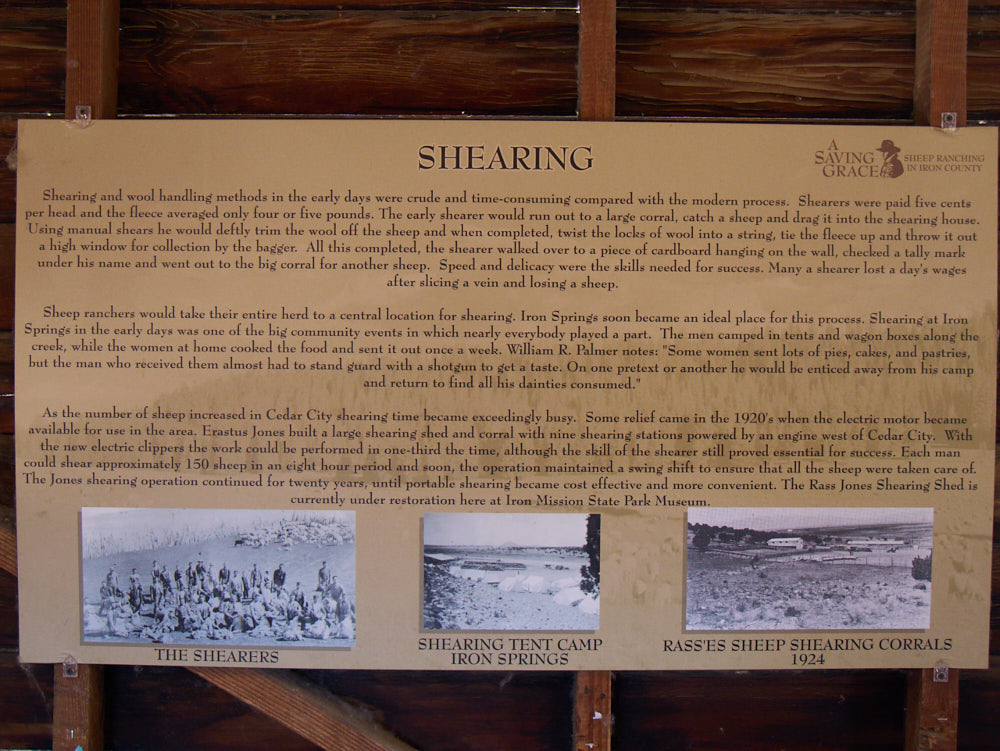 SHEARING
A
SAVING
GRACE
SHEEP RANCHING
IN IRON COUNTY
Shearing and wool handling methods in the early days were crude and time-consuming compared with the modern process. Shearers were paid five cents
per head and the fleece averaged only four or five pounds. The early shearer would run out to a large corral, catch a sheep and drag it into the shearing house.
Using manual shears he would deftly trim the wool off the sheep and when completed, twist the locks of wool into a string, tie the fleece up and throw it out
a high window for collection by the bagger. All this completed, the shearer walked over to a piece of cardboard hanging on the wall, checked a tally mark
under his name and went out to the big corral for another sheep. Speed and delicacy were the skills needed for success. Many a shearer lost a day's wages
after slicing a vein and losing a sheep.
Sheep ranchers would take their entire herd to a central location for shearing. Iron Springs soon became an ideal place for this process. Shearing at Iron
Springs in the early days was one of the big community events in which nearly everybody played a part. The men camped in tents and wagon boxes along the
creek, while the women at home cooked the food and sent it out once a week. William R. Palmer notes: "Some women sent lots of pies, cakes, and pastries,
but the man who received them almost had to stand guard with a shotgun to get a taste. On one pretext or another he would be enticed away from his camp
and return to find all his dainties consumed."
As the number of sheep increased in Cedar City shearing time became exceedingly busy. Some relief came in the 1920's when the electric motor became
available for use in the area. Erastus Jones built a large shearing shed and corral with nine shearing stations powered by an engine west of Cedar City. With
the new electric clippers the work could be performed in one-third the time, although the skill of the shearer still proved essential for success. Each man
could shear approximately 150 sheep in an eight hour period and soon, the operation maintained a swing shift to ensure that all the sheep were taken care of.
The Jones shearing operation continued for twenty years, until portable shearing became cost effective and more convenient. The Rass Jones Shearing Shed is
currently under restoration here at Iron Mission State Park Museum.
THE SHEARERS
SHEARING TENT CAMP
IRON SPRINGS
RASS'ES SHEEP SHEARING CORRALS
1924